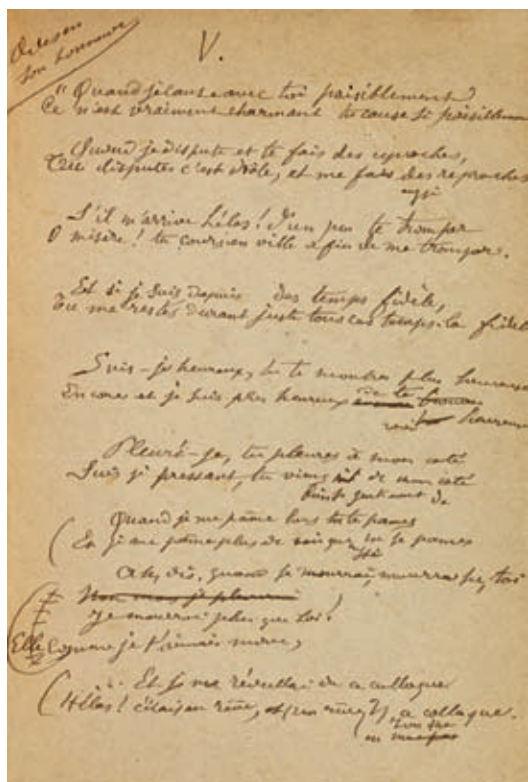 Odes en
son honneur
V.
"Quand je cause avec toi paisiblement
Ce m'est vraiment charmant tu cause si paisiblem
Quand je dispute et te fais des reproches,
Tu disputes c'est drôle, et me fais des reproches
aussi
S'il m'arrive hélas! d'un peu te tromper
O misère! tu cours en ville afin de me tromper.
Et si je suis depuis des temps fidèle,
Tu me restes durant juste tous ces temps-là fidèle
Suis-je heureux, tu te montres plus heureuse
Encore et je suis plus heureux de te
heureuse
Pleuré-je, tu pleures à mon coté
Suis-je pressant, tu viens de mon coté
Quand je me pâme lors tu te pames
Et je me pâme plus de tu te pames
aussi
Ah, dis, quand je mourrai, mourras-tu, toi
Non mais je
Je mourrai plus que toi!
Elle: Comme je t'aimais mieux,
... Et je me réveillai de ce colloque
Hélas! c'était un rêve, et (un rêve?), ce colloque.
ou